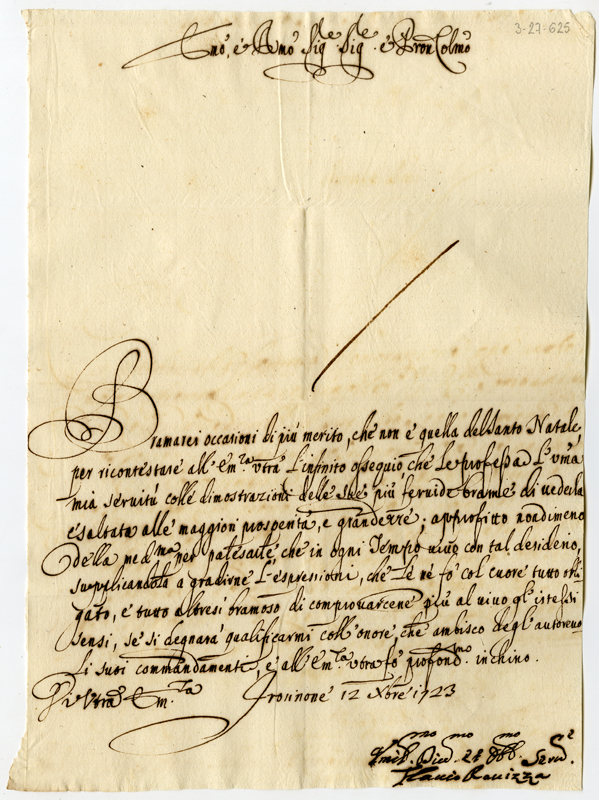 3-27-625
Em̃o, è Rm̃o Sig.re Sig.re è Pron Colmo
Bramarei occasioni di più merito, che non è quella del Santo Natale,
per ricontestare all' Em.za Vrã l'infinito ossequio che le professa l' umã
mia servitù colle dimostrazioni delle sue più fervide brame di vederla
esaltata alle maggiori prosperità, e grandezze; approfitto nondimeno
della med.ma per palesarle che in ogni Tempo vivo con tal desiderio,
supplicandola a gradirne l'espressioni, che le ne fò col cuore tutto obli
gato, e tutto altresì bramoso di comprovarcene più al vivo gl'istessi
sensi, se si degnarà qualificarmi coll' onore, che ambisco degl'autorevo
li suoi commandamenti, e all' Em.za vrã fò profond.mo inchino.
Di Vrã Em.za Frosinone 12 Xbre 1723
Umil.mo Div.mo et Obb.mo Serv.e
Flavio Ravizza